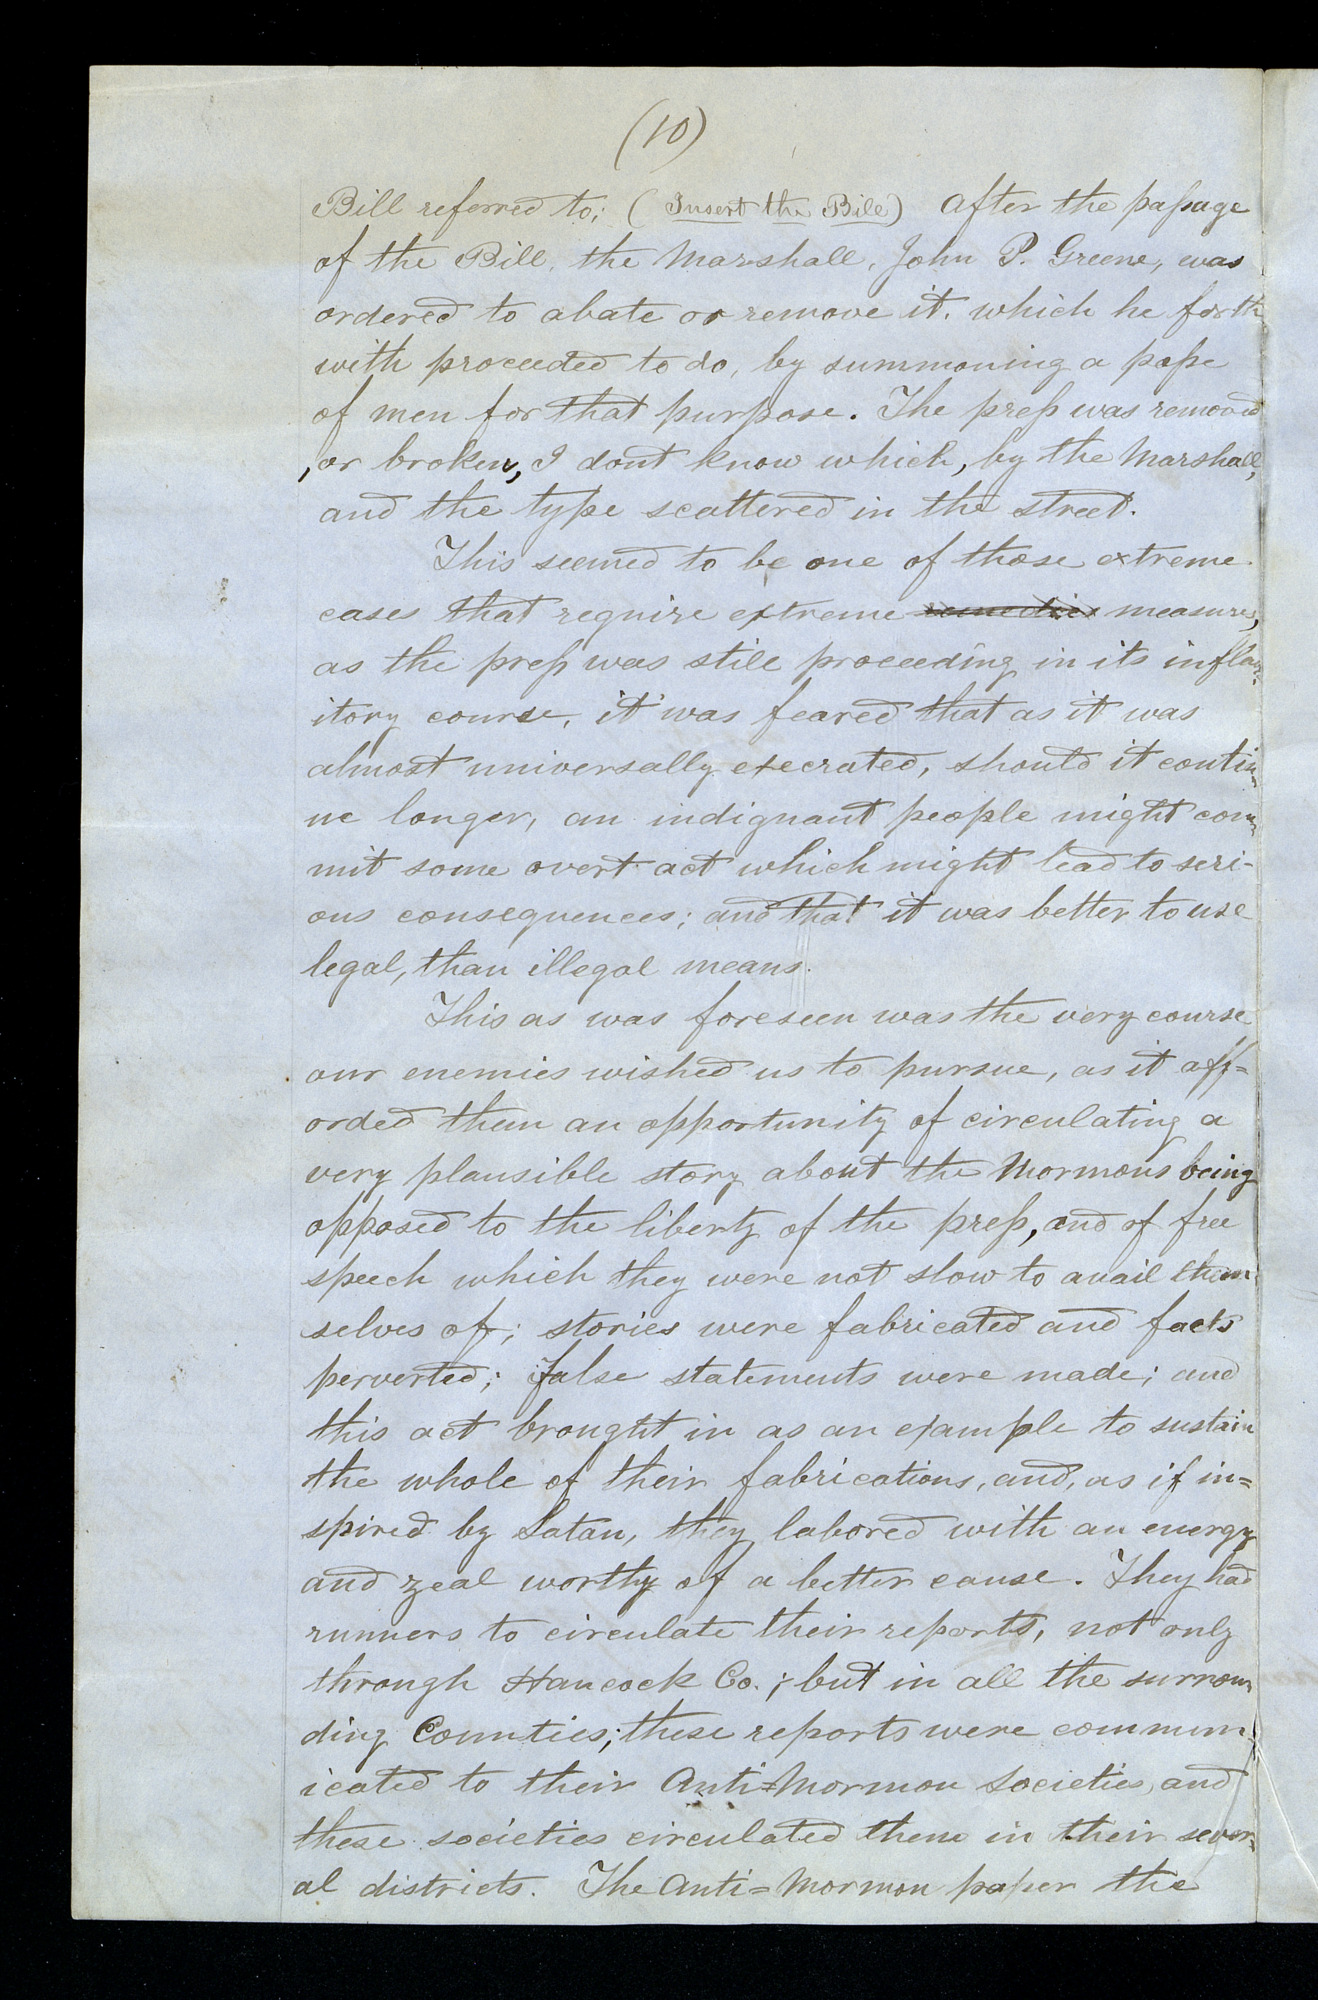 (10)
Bill referred to; (Insert the Bill) After the passage
of the Bill, the Marshall, John P. Greene, was
ordered to abate or remove it, which he forth
with proceeded to do, by summoning a posse
of men for that purpose. The press was removed
, or broken, I dont know which, by the Marshall,
and the type scattered in the street.
This seemed to be one of those extreme
cases that require extreme remedies measures,
as the press was still proceeding in its inflam-
itory course, it was feared that as it was
almost universally execrated, should it contin-
ue longer, an indignant people might com-
mit some overt act which might lead to seri-
ous consequences; and that it was better to use
legal, than illegal means.
This as was foreseen was the very course
our enemies wished us to pursue, as it aff=
orded them an opportunity of circulating a
very plausible story about the Mormons being
opposed to the liberty of the press, and of free
speech which they were not slow to avail them-
selves of; stories were fabricated and facts
perverted; false statements were made; and
this act brought in as an example to sustain
the whole of their fabrications, and, as if in=
spired by Satan, they labored with an energy
and zeal worthy of a better cause. They had
runners to circulate their reports, not only
through Hancock Co.; but in all the surroun
ding Counties; these reports were commun-
icated to their Anti=Mormon Societies, and
these societies circulated them in their sever-
al districts. The Anti=Mormon paper the